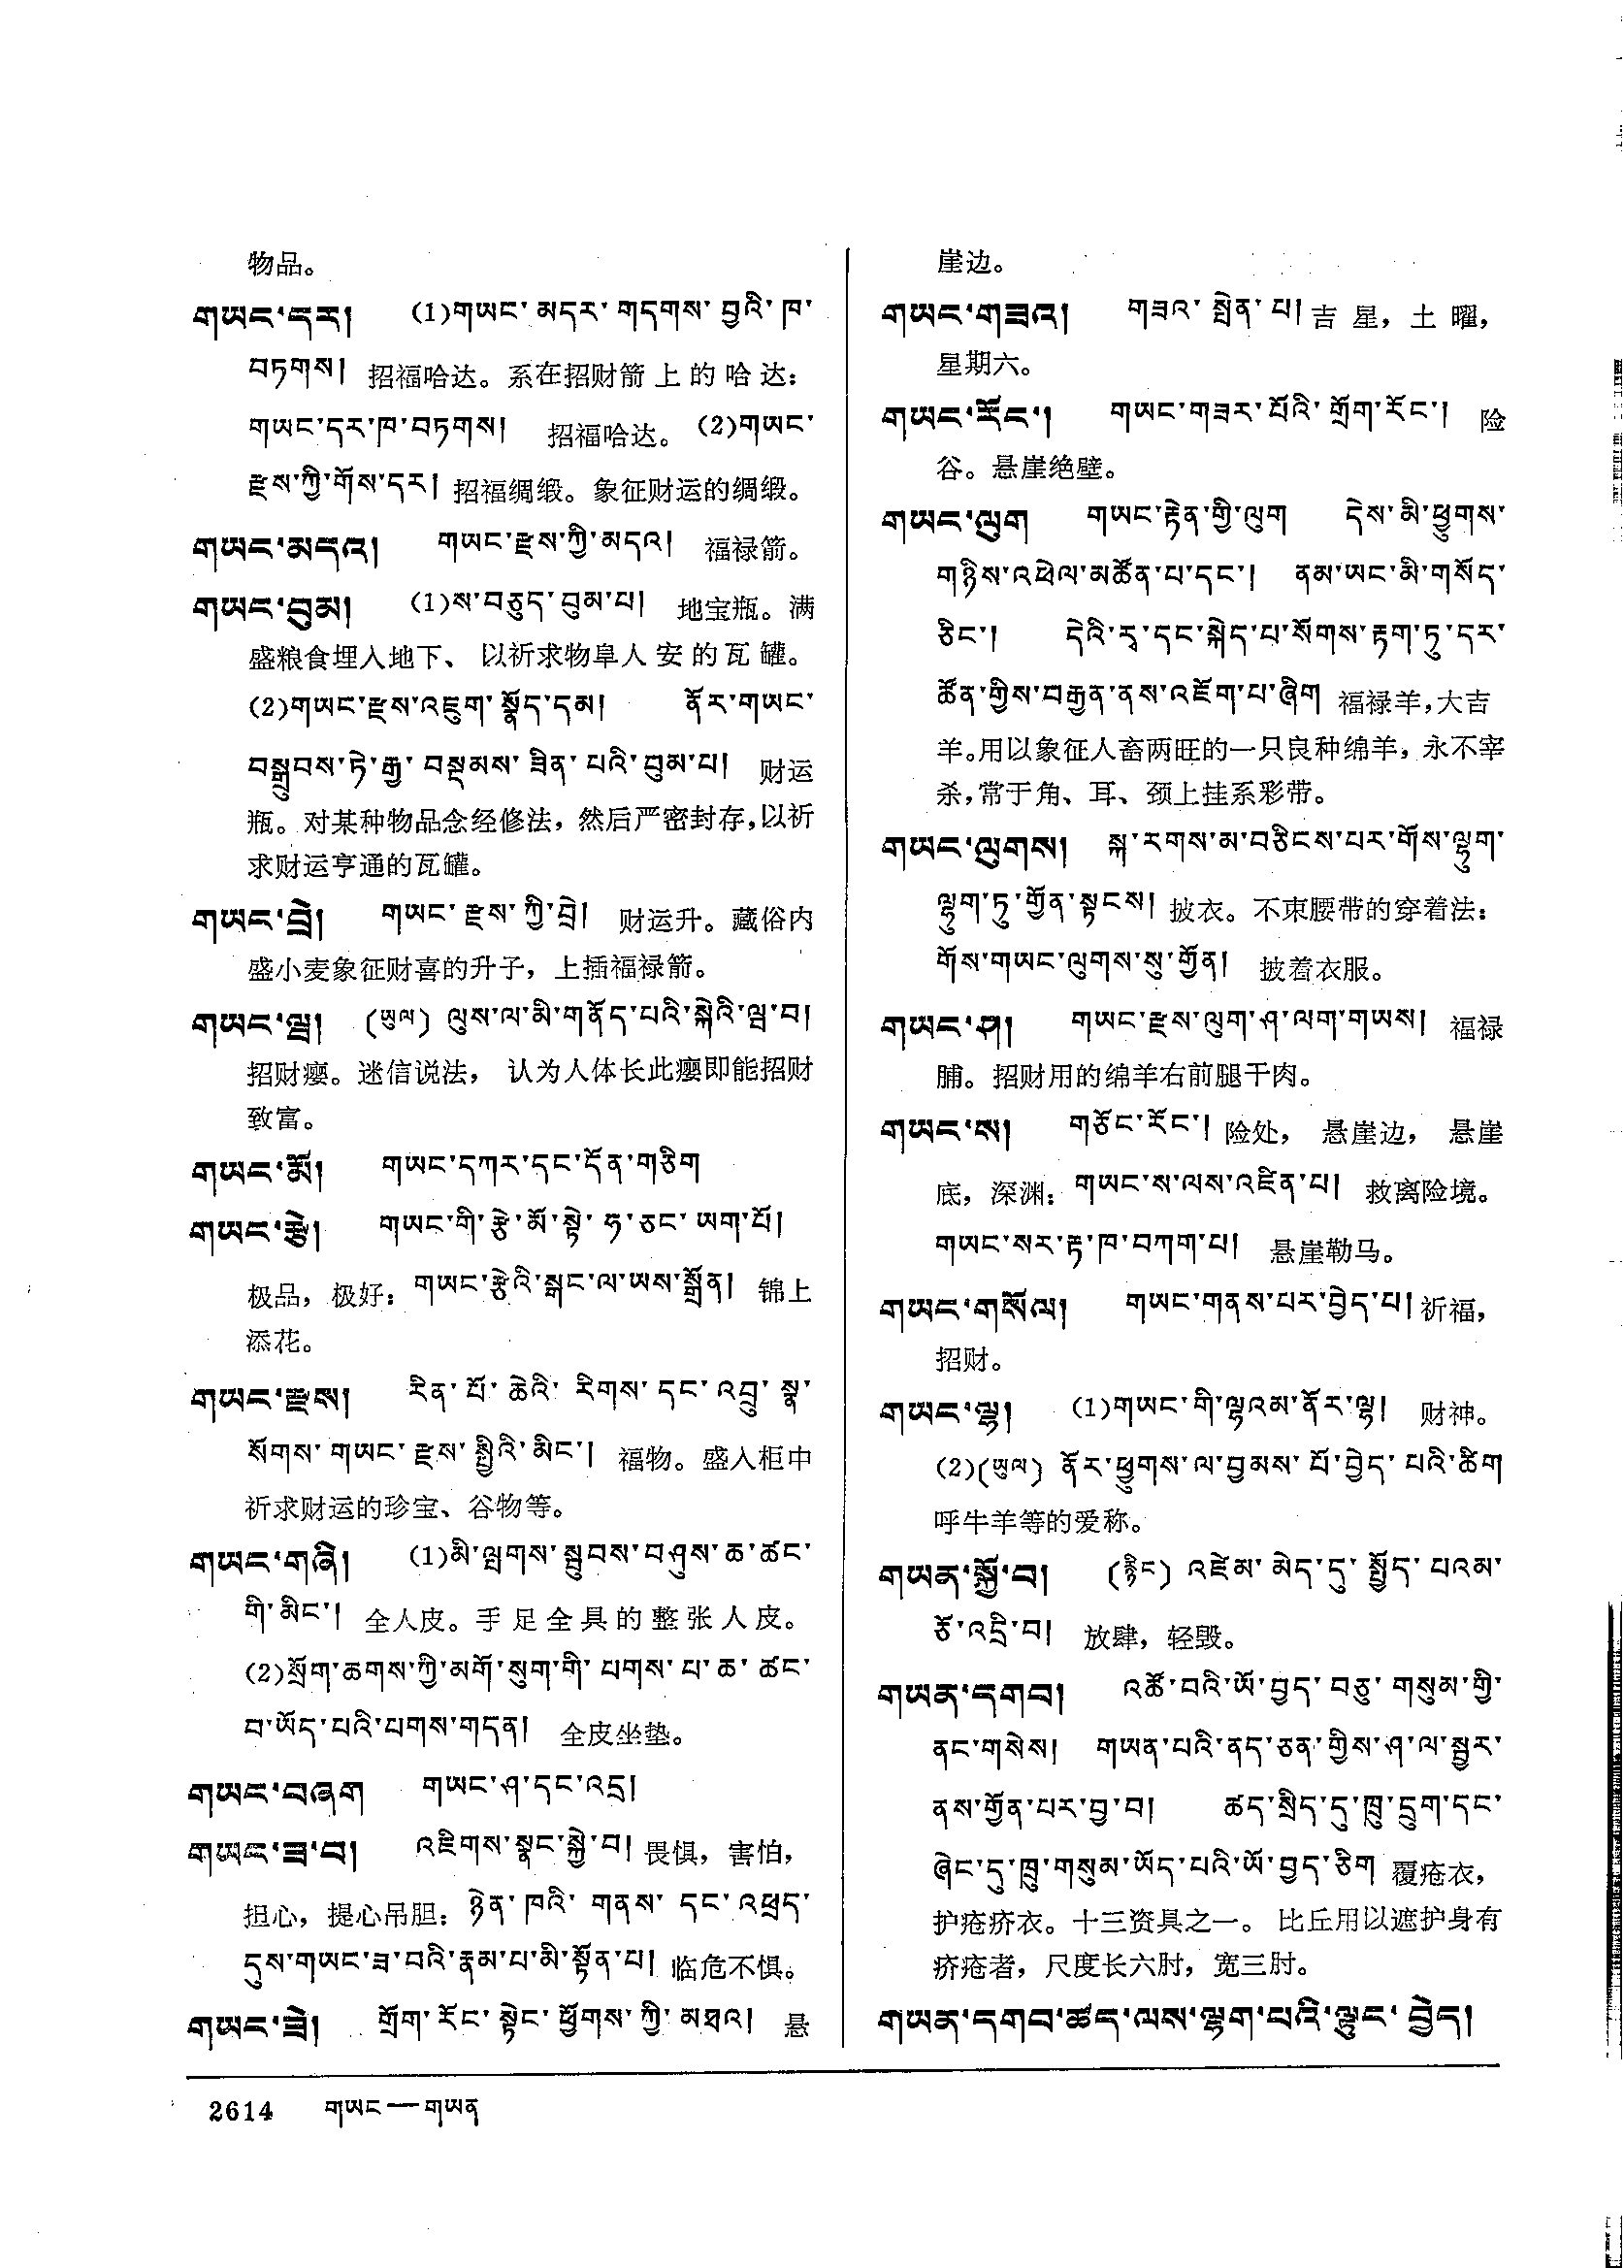 物品。
གཡང་དར། (1)གཡང་མདར་གདགས་བྱའི་ཁ་
བཏགས། 招福哈达。系在招财箭上的哈达：
གཡང་དར་ཁ་བཏགས། 招福哈达。(2)གཡང་
རྫས་ཀྱི་གོས་དར། 招福绸缎。象征财运的绸缎。
གཡང་མདའ། གཡང་རྫས་ཀྱི་མདའ། 福禄箭。
གཡང་བུམ། (1)ས་བཅུད་བུམ་པ། 地宝瓶。满
盛粮食埋入地下、以祈求物阜人安的瓦罐。
(2)གཡང་རྫས་འཇུག་སྣོད་དམ། ནོར་གཡང་
བསྒྲུབས་ཏེ་རྒྱ་བསྡམས་ཟིན་པའི་བུམ་པ། 财运
瓶。对某种物品念经修法，然后严密封存，以祈
求财运亨通的瓦罐。
གཡང་བྲེ། གཡང་རྫས་ཀྱི་བྲེ། 财运升。藏俗内
盛小麦象征财喜的升子，上插福禄箭。
གཡང་ལྦ། (ཡུལ) ལུས་ལ་མི་གནོད་པའི་སྐེའི་ལྦ་བ།
招财瘿。迷信说法，认为人体长此瘿即能招财
致富。
གཡང་མོ། གཡང་དཀར་དང་དོན་གཅིག
གཡང་རྩེ། གཡང་གི་རྩེ་མོ་སྟེ་ཧ་ཅང་ཡག་པོ།
极品，极好：གཡང་རྩེའི་སྒང་ལ་ཡས་སྒྲོན། 锦上
添花。
གཡང་རྫས། རིན་པོ་ཆེའི་རིགས་དང་འབྲུ་སྣ་
སོགས་གཡང་རྫས་སྤྱིའི་མིང་། 福物。盛入柜中
祈求财运的珍宝、谷物等。
གཡང་གཞི། (1)མི་ལྤགས་སྦུབས་བཤུས་ཆ་ཚང་
གི་མིང་། 全人皮。手足全具的整张人皮。
(2)སྲོག་ཆགས་ཀྱི་མགོ་སུག་གི་པགས་པ་ཆ་ཚང་
བ་ཡོད་པའི་པགས་གདན། 全皮坐垫。
གཡང་བཞག གཡང་ཤ་དང་འདྲ།
གཡང་ཟ་བ། འཇིགས་སྣང་སྐྱེ་བ། 畏惧，害怕，
担心，提心吊胆：ཉེན་ཁའི་གནས་དང་འཕྲད་
དུས་གཡང་ཟ་བའི་རྣམ་པ་མི་སྟོན་པ། 临危不惧。
གཡང་ཟེ། གྲོག་རོང་སྟེང་ཕྱོགས་ཀྱི་མཐའ། 悬
崖边。
གཡང་གཟའ། གཟའ་སྤེན་པ། 吉星，土曜，
星期六。
གཡང་རོང་། གཡང་གཟར་པོའི་གྲོག་རོང་། 险
谷。悬崖绝壁。
གཡང་ལུག གཡང་རྟེན་གྱི་ལུག དེས་མི་ཕྱུགས་
གཉིས་འཕེལ་མཚོན་པ་དང་། ནམ་ཡང་མི་གསོད་
ཅིང་། དེའི་རྭ་དང་སྐེད་པ་སོགས་རྟག་ཏུ་དར་
ཚོན་གྱིས་བརྒྱན་ནས་འཇོག་པ་ཞིག 福禄羊，大吉
羊。用以象征人畜两旺的一只良种绵羊，永不宰
杀，常于角、耳、颈上挂系彩带。
གཡང་ལུགས། སྐ་རགས་མ་བཅིངས་པར་གོས་ལྷུག་
ལྷུག་ཏུ་གྱོན་སྟངས། 披衣。不束腰带的穿着法：
གོས་གཡང་ལུགས་སུ་གྱོན། 披着衣服。
གཡང་ཤ། གཡང་རྫས་ལུག་ཤ་ལག་གཡས། 福禄
脯。招财用的绵羊右前腿干肉。
གཡང་ས། གཅོང་རོང་། 险处，悬崖边，悬崖
底，深渊：གཡང་ས་ལས་འཛིན་པ། 救离险境。
གཡང་སར་རྟ་ཁ་བཀག་པ། 悬崖勒马。
གཡང་གསོལ། གཡང་གནས་པར་བྱེད་པ། 祈福，
招财。
གཡང་ལྷ། (1)གཡང་གི་ལྷའམ་ནོར་ལྷ། 财神。
(2)(ཡུལ) ནོར་ཕྱུགས་ལ་བྱམས་པོ་བྱེད་པའི་ཚིག
呼牛羊等的爱称。
གཡན་སྐྱོ་བ། (རྙིང) འཛེམ་མེད་དུ་སྤྱོད་པའམ་
ཙོ་འདྲི་བ། 放肆，轻毁。
གཡན་དགབ། འཚོ་བའི་ཡོ་བྱད་བཅུ་གསུམ་གྱི་
ནང་གསེས། གཡན་པའི་ནད་ཅན་གྱིས་ཤ་ལ་སྦྱར་
ནས་གྱོན་པར་བྱ་བ། ཚད་སྲིད་དུ་ཁྲུ་དྲུག་དང་
ཞེང་དུ་ཁྲུ་གསུམ་ཡོད་པའི་ཡོ་བྱད་ཅིག 覆疮衣，
护疮疥衣。十三资具之一。比丘用以遮护身有
疥疮者，尺度长六肘，宽三肘。
གཡན་དགབ་ཚད་ལས་ལྷག་པའི་ལྟུང་བྱེད།
2614 གཡང—གཡན